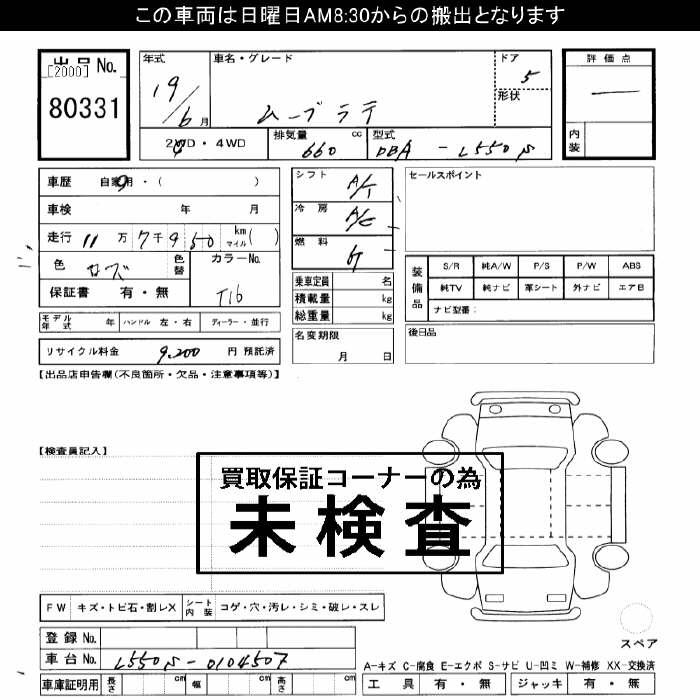 この車両は日曜日AM8:30からの搬出となります
出品 No.
[2000]
80331
年式
19/6月
車名・グレード
ムーブラテ
ドア
5
形状
評価点
内装
2WD・4WD
排気量 cc
660
型式
DBA-L550S
車歴 自家用・( )
車検 年 月
走行 11万7千950 km マイル( )
色
色替
カラーNo.
T16
保証書 有・無
モデル年式 年
ハンドル 左・右
ディーラー・並行
リサイクル料金 9,200 円 預託済
シフト A/T
冷房 A/C
燃料
乗車定員 名
積載量 kg
総重量 kg
名変期限
月 日
セールスポイント
装備品
S/R 純A/W P/S P/W ABS
純TV 純ナビ 革シート 外ナビ エアB
ナビ型番:
後日品
【出品店申告欄(不良箇所・欠品・注意事項等)】
【検査員記入】
買取保証コーナーの為
未検査
FW キズ・トビ石・割レX
シート内装 コゲ・穴・汚レ・シミ・破レ・スレ
登録 No.
車台 No. L550S-0104507
車庫証明用 長さ cm 幅 cm 高さ cm
スペア
A-キズ C-腐食 E-エクボ S-サビ U-凹ミ W-補修 XX-交換済
工具 有・無
ジャッキ 有・無